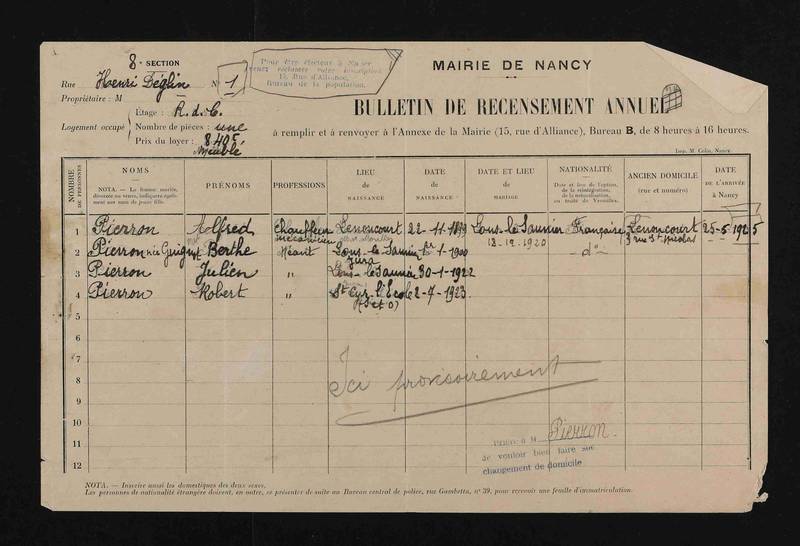 8e SECTION
Rue Henri Déglin N° 1
Propriétaire : M
Logement occupé
Étage : R. d. C.
Nombre de pièces : une
Prix du loyer : 840f
Meublé
Pour être électeur à Nancy
venez réclamer votre inscription
15, Rue d'Alliance,
Bureau de la population.
MAIRIE DE NANCY
BULLETIN DE RECENSEMENT ANNUEL
à remplir et à renvoyer à l'Annexe de la Mairie (15, rue d'Alliance), Bureau B, de 8 heures à 16 heures.
Imp. M. Colin, Nancy
NOMBRE DE PERSONNES
NOMS
NOTA. — La femme mariée, divorcée ou veuve, indiquera également son nom de jeune fille.
PRÉNOMS
PROFESSIONS
LIEU de NAISSANCE
DATE de NAISSANCE
DATE ET LIEU de MARIAGE
NATIONALITÉ
Date et lieu de l'option, de la réintégration, de la naturalisation, ou traité de Versailles.
ANCIEN DOMICILE (rue et numéro)
DATE DE L'ARRIVÉE à Nancy
1 Pierron Alfred Chauffeur mécanicien Lenoncourt 22-11-1899 Lons-le-Saunier 18-12-1920 Française Lenoncourt 3 rue St Nicolas 25-5 1925
2 Pierron née Berthe Néant Lons-le-Saunier Jura 1er-1-1900 -do-
3 Pierron Julien " Lons-le-Saunier 30-1-1922
4 Pierron Robert " St Cyr l'Ecole (S et O) 2-7-1923
5
6
7
8
9
10
11
12
Ici provisoirement
PRIÈRE à M Pierron.
de vouloir bien faire son
changement de domicile
NOTA. — Inscrire aussi les domestiques des deux sexes.
Les personnes de nationalité étrangère doivent, en outre, se présenter de suite au Bureau central de police, rue Gambetta, n° 39, pour recevoir une feuille d'immatriculation.